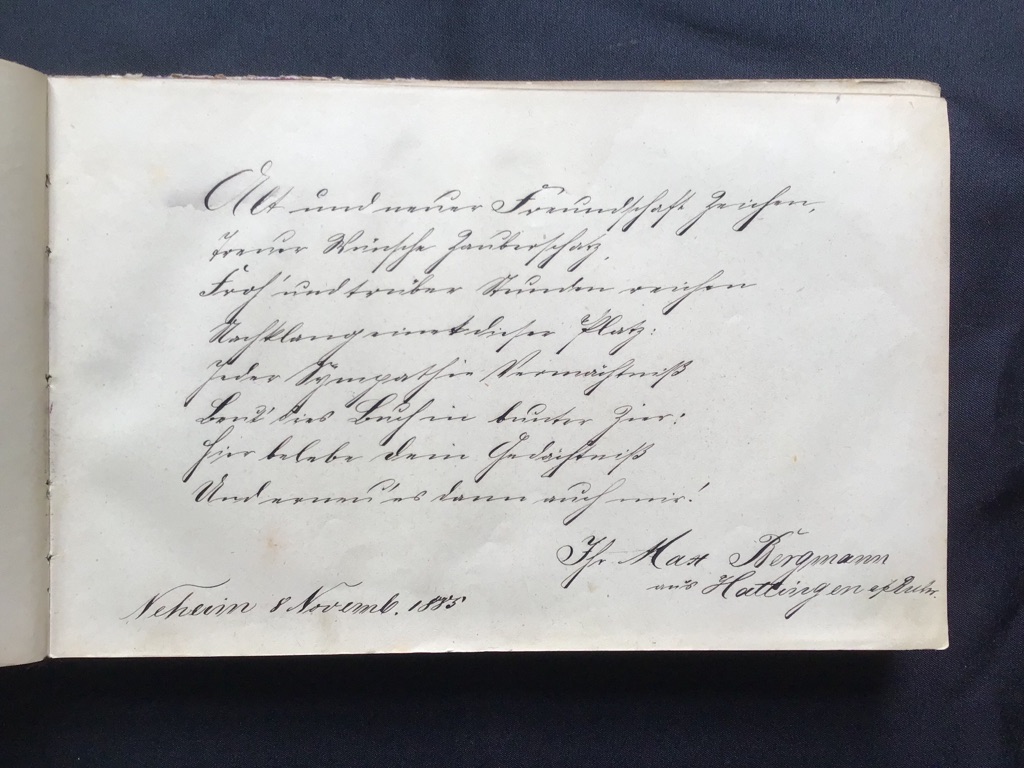 Alt und neuer Freundschaft Zeichen,
Treuer Wünsche Zauberschatz,
Froh' und trüber Stunden reichen
Nachklang einet dieser Platz:
Jeder Sympathie Vermächtniß
Beut' dies Buch in bunter Zier:
Hier belebe dein Gedächtniß
Und erneu' es dann auch mir!
Ihr Max Bergmann
aus Hattingen a/Ruhr.
Neheim 8 Novemb. 1885